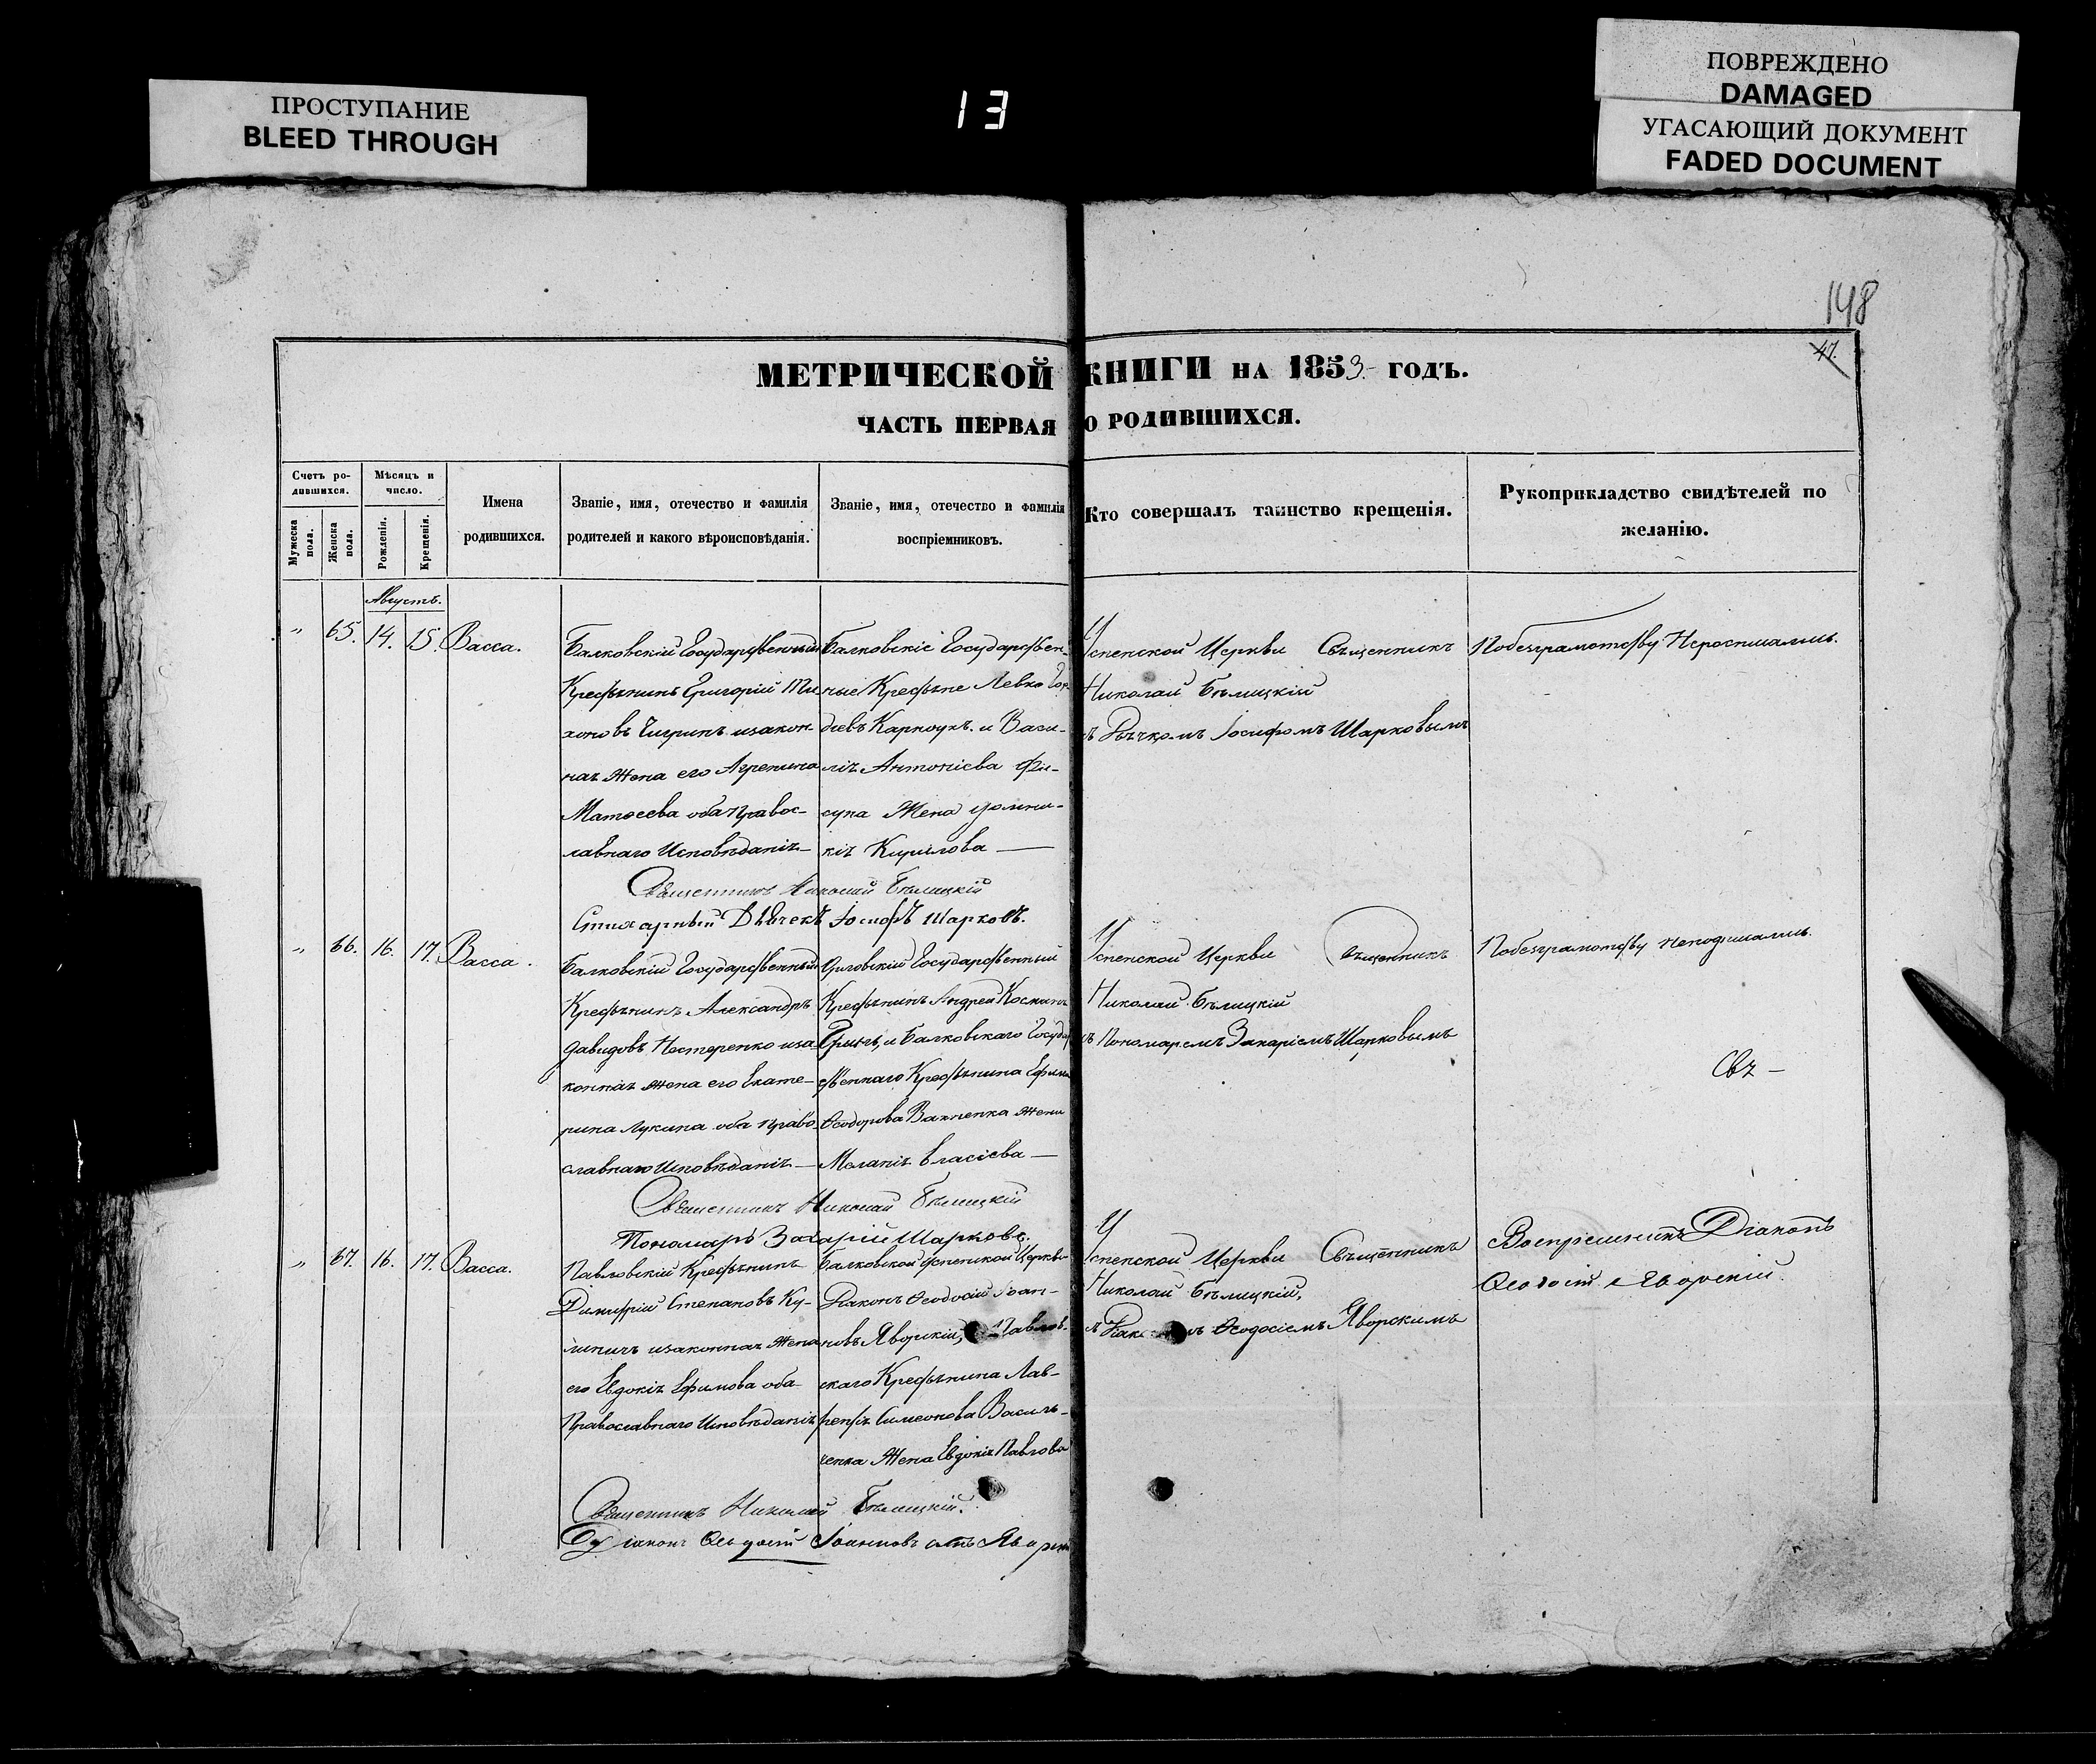 ПРОСТУПАНИЕ
BLEED THROUGH
13
ПОВРЕЖДЕНО
DAMAGED
УГАСАЮЩИЙ ДОКУМЕНТ
FADED DOCUMENT
148
47.
МЕТРИЧЕСКОЙ КНИГИ НА 1853 ГОДЪ.
ЧАСТЬ ПЕРВАЯ О РОДИВШИХСЯ.
Счетъ ро-
дившихся.
Мужеска пола.
Женска пола.
Мѣсяцъ и
число.
Рожденія.
Крещенія.
Имена
родившихся.
Званіе, имя, отечество и фамилія
родителей и какого вѣроисповѣданія.
Званіе, имя, отечество и фамилія
воспріемниковъ.
Кто совершалъ таинство крещенія.
Рукоприкладство свидѣтелей по
желанію.
Августъ.
" 65. 14. 15. Васса.
Балковскій Государственный
Крестьянинъ Григорій Ти
хоновъ Чигринъ и закон-
ная жена его Агрепина
Матѳеева оба правос-
лавнаго Исповѣданія
Балковскіе Государствен-
ные Крестьяне Левко
Карпоукъ и Васи-
лія Антоніева
жена
кія Кирилова
Успенской Церкви Священникъ
Николай Бѣлицкій
съ Дьячкомъ Іосифомъ Шарковымъ
По безграмотству
Священникъ Николай Бѣлицкій
Стихарный Дьячекъ Іосифъ Шарковъ.
" 66. 16. 17. Васса.
Балковскій Государственный
Крестьянинъ Александръ
Давидовъ Нестеренко и за
конная жена его Екате-
рина Лукина оба право-
славнаго Исповѣданія
Государственный
Крестьянинъ Андрей
и Балковскаго Государ
ственнаго Крестьянина
Ѳеодорова жена
Меланія Власіева
Успенской Церкви Священникъ
Николай Бѣлицкій
съ Пономаремъ Захаріемъ Шарковымъ
По безграмотству неподписались.
Свя-
Священникъ Николай Бѣлицкій
Пономарь Захарій Шарковъ.
" 67. 16. 17. Васса.
Павловскій Крестьянинъ
Димитрій Степановъ Ку-
и законная жена
его Евдокія Ефимова оба
Православнаго Исповѣданія
Балковской Успенской Церкви
Діаконъ Ѳеодосій Іоан-
новъ Яворскій, Павлов-
скаго Крестьянина Лав-
рентія Симеонова Василь-
ченка жена Евдокія Павлова
Успенской Церкви Священникъ
Николай Бѣлицкій,
съ Ѳеодосіемъ Яворскимъ
Воспріемникъ Діаконъ
Ѳеодосій Яворскій.
Священникъ Николай Бѣлицкій.
Діаконъ Ѳеодосій Іоанновъ